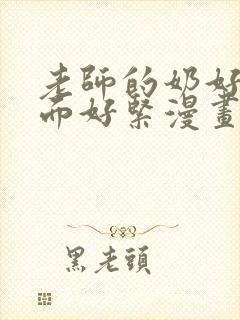 老師的奶好
而好緊漫畫
黑老頭